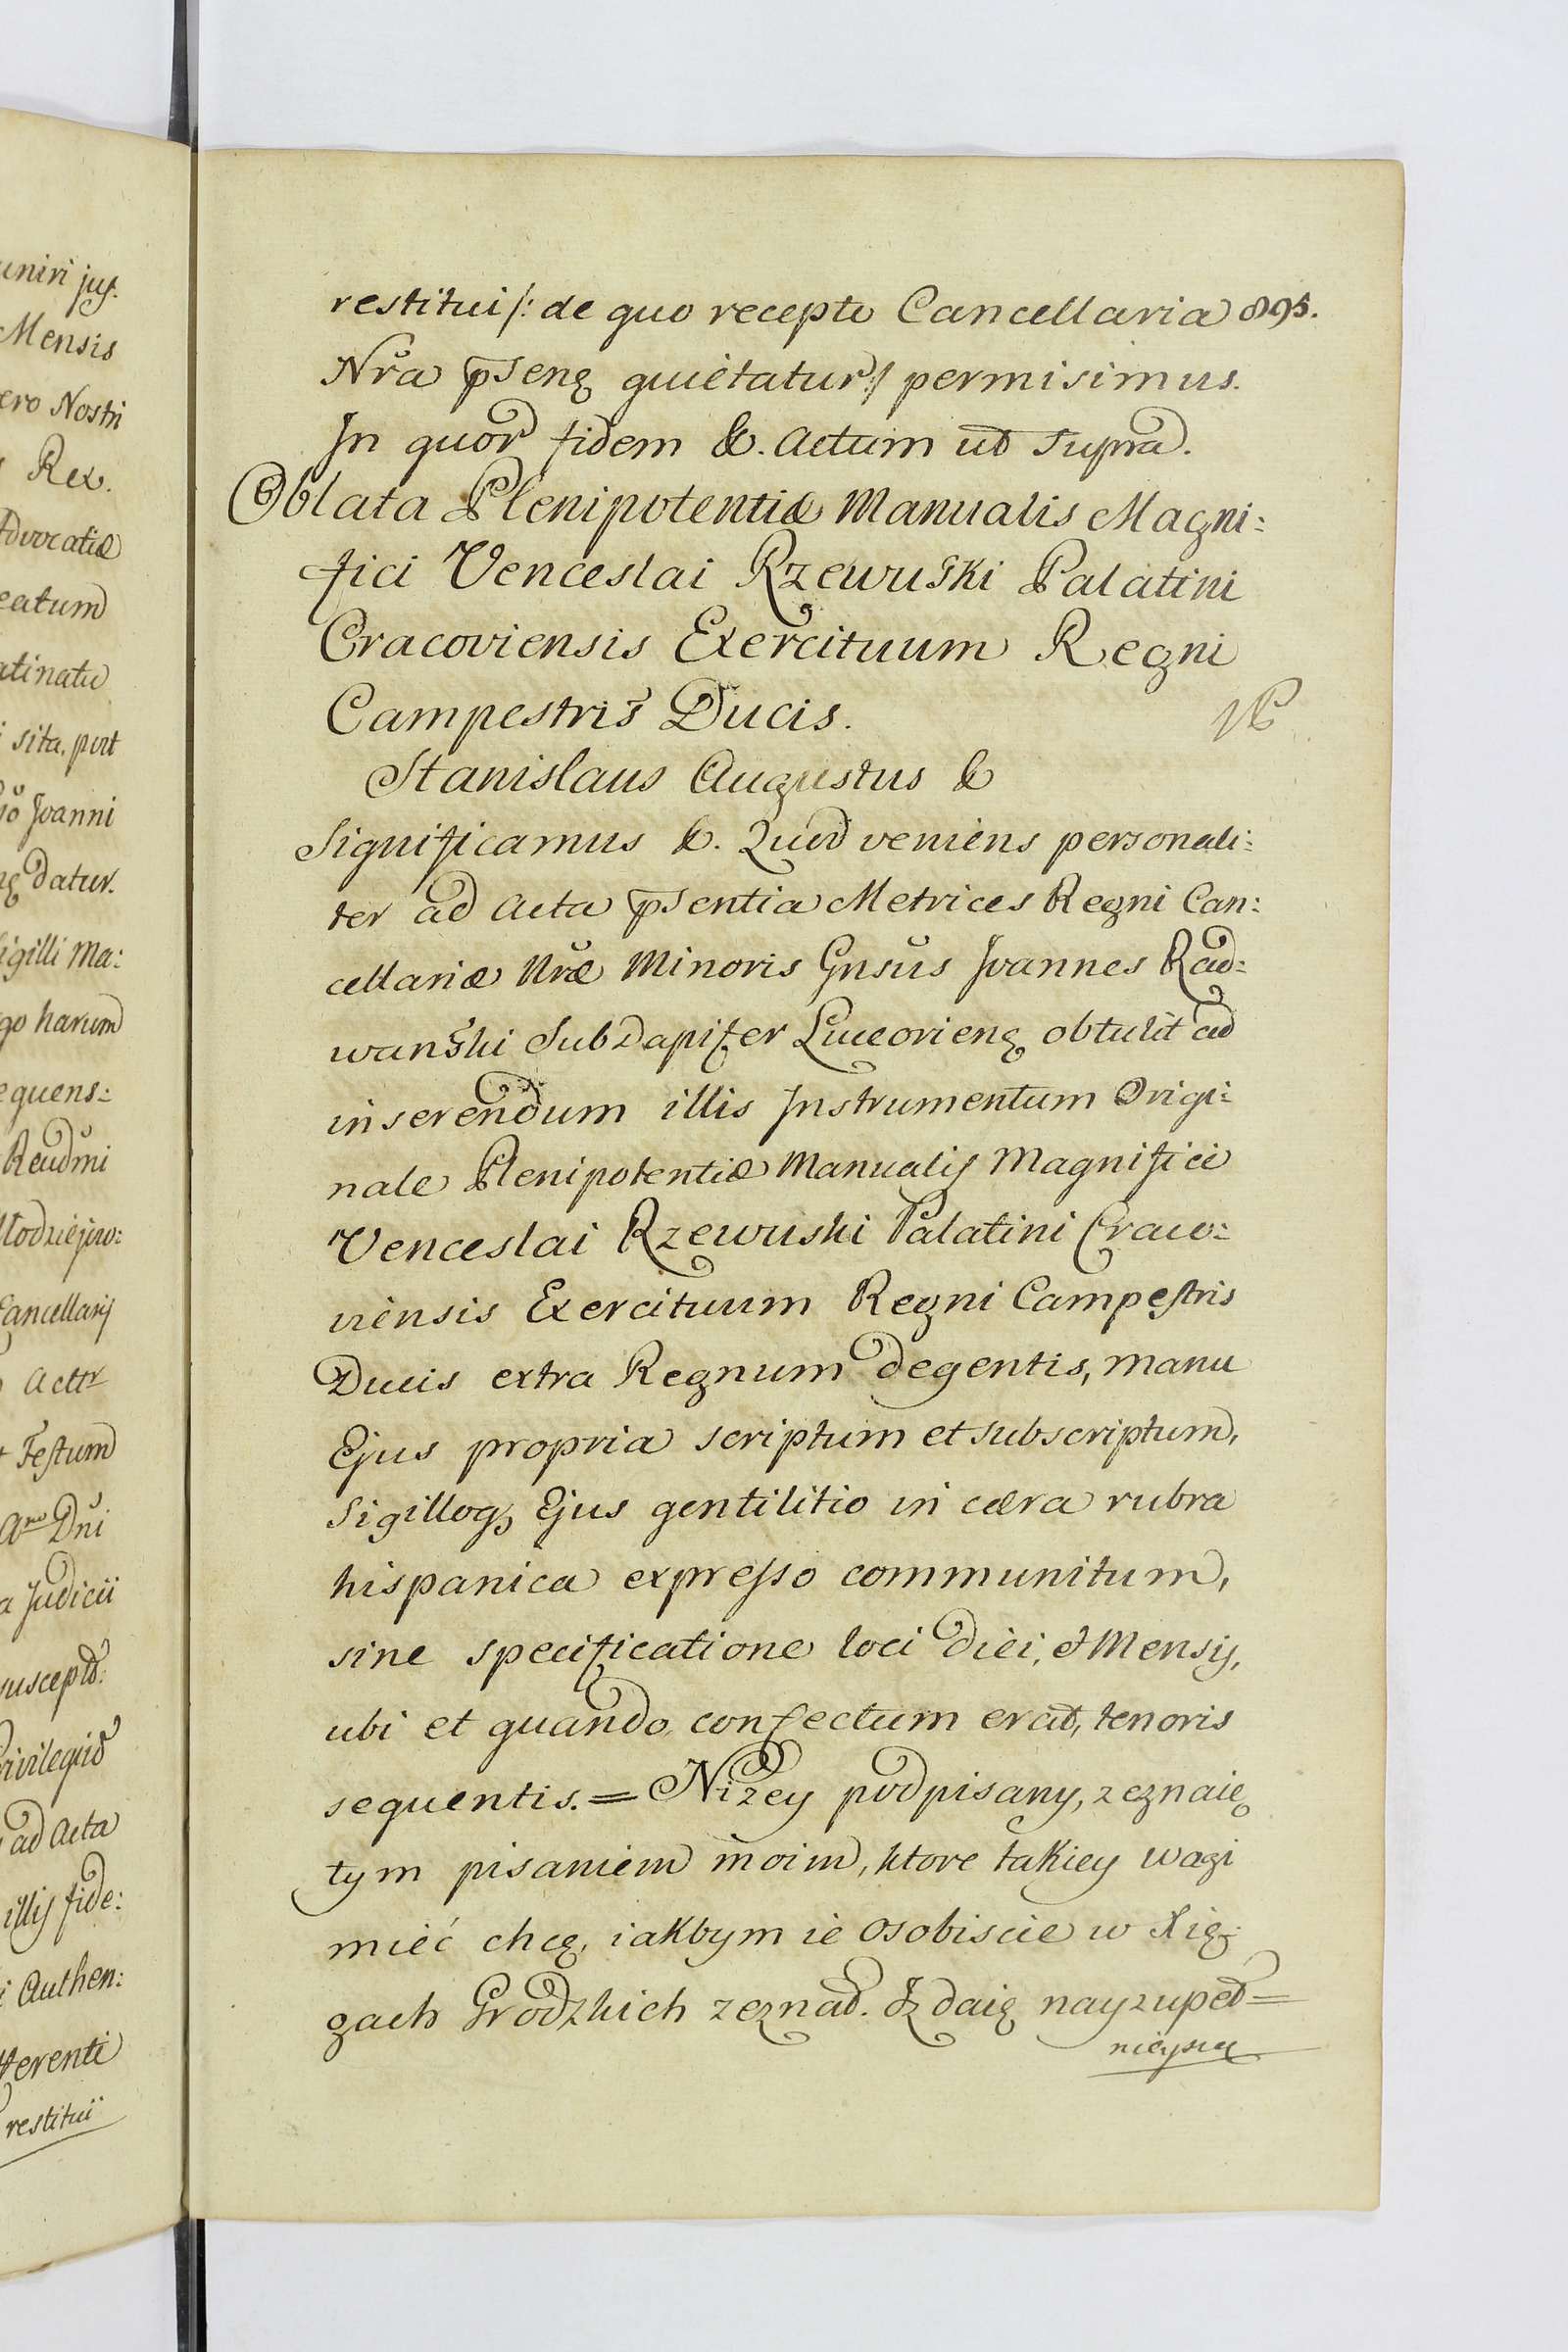 uniri jus.
Mensis
ero Nostri
Rex.
Advocatiæ
eatum
atinatu
sita, port
Joanni
datur.
igilli Ma:
go harum
equens:
Reudmi
łodziejow:
Cancellarij
Actꝛ
Festum
Aᵒ Dni
a Judicii
suscept:
rivilegiu
ad Acta
illis fide:
i Authen:
fferenti
restitui
restitui /: de quo recepto Cancellaria 895.
Nr̃a p̄senꝫ quietatur :/ permisimus.
In quor̃ fidem &. Actum ut supra.
Oblata Plenipotentiæ Manualis Magni:
fici Venceslai Rzewuski Palatini
Cracoviensis Exercituum Regni
Campestris Ducis.
Stanislaus Augustus &
Significamus &. Quod veniens personali:
ter ad Acta p̄sentia Metrices Regni Can:
cellariæ Nr̃æ Minoris Gnsũs Joannes Rad:
wański Subdapifer Luceorienꝫ obtulit ad
inserendum illis Instrumentum Origi:
nale Plenipotentiæ Manualis Magnifici
Venceslai Rzewuski Palatini Craco:
viensis Exercituum Regni Campestris
Ducis extra Regnum degentis, manu
Ejus propria scriptum et subscriptum,
Sigilloqꝫ Ejus gentilitio in cæra rubra
hispanica expresso communitum,
sine specificatione loci diei, et Mensis,
ubi et quando confectum erat, tenoris
sequentis. = Niżey podpisany, zeznaię
tym pisaniem moim, ktore takiey wagi
mieć chcę, iakbym ie osobiscie w Xię:
gach Grodzkich zeznał. Iż daię nayzupeł=
nieyszą